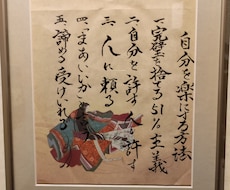 自分を楽にする方法
一、完璧を捨てる 51%主義
二、自分を許す 人も許す
三、人に頼る
四、「まあいいか」
五、諦める 受けいれる